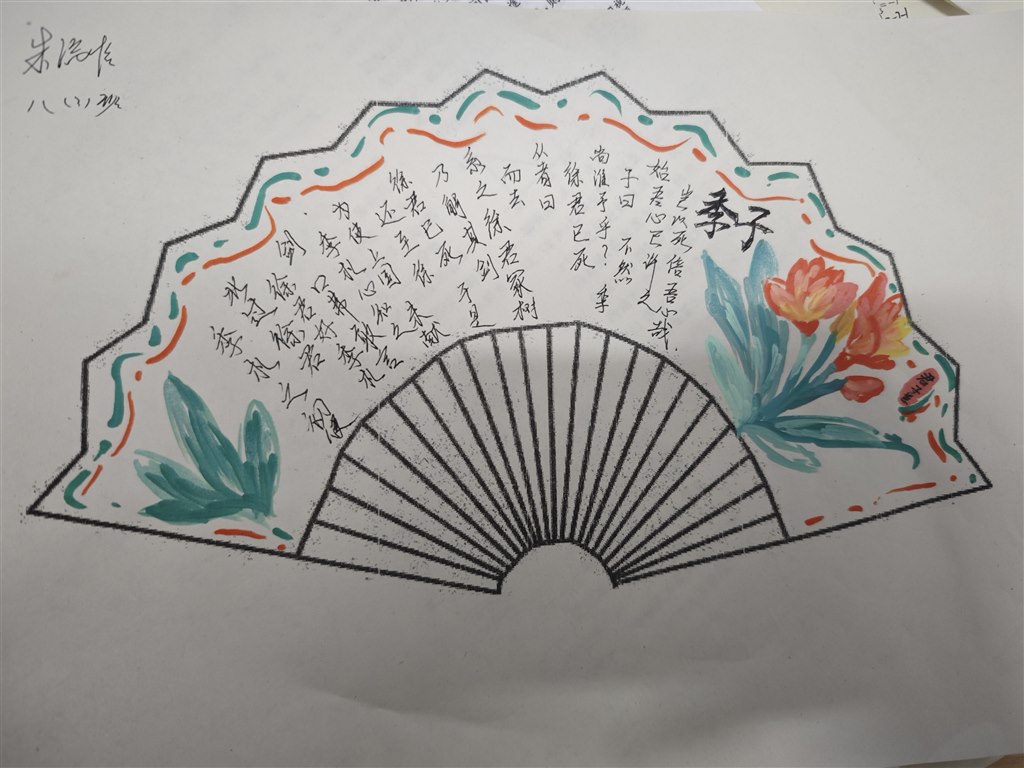 八(2)班
季子
季札之初使
北过徐君
徐君好季札
剑口弗敢言
季札心知之
为使上国未献
还至徐
徐君已死于是
乃解其剑
系之徐君冢树
而去
从者曰
徐君已死
尚谁予乎?季
子曰 不然
始吾心已许之
岂以死倍吾心哉